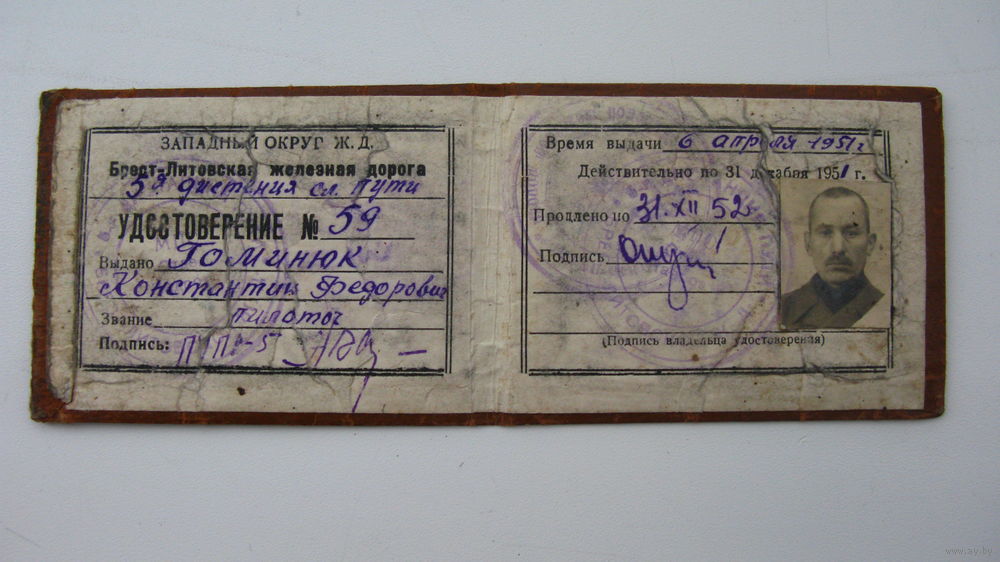 ЗАПАДНЫЙ ОКРУГ Ж. Д.
Брест-Литовская железная дорога
5я дистанция сл. пути
УДОСТОВЕРЕНИЕ № 59
Выдано Гоминюк
Константин Федорович
Звание
Подпись: ПЧП-5
Время выдачи 6 апреля 1951 г.
Действительно по 31 декабря 1951 г.
Продлено по 31.XII 52
Подпись
(Подпись владельца удостоверения)
www.ay.by